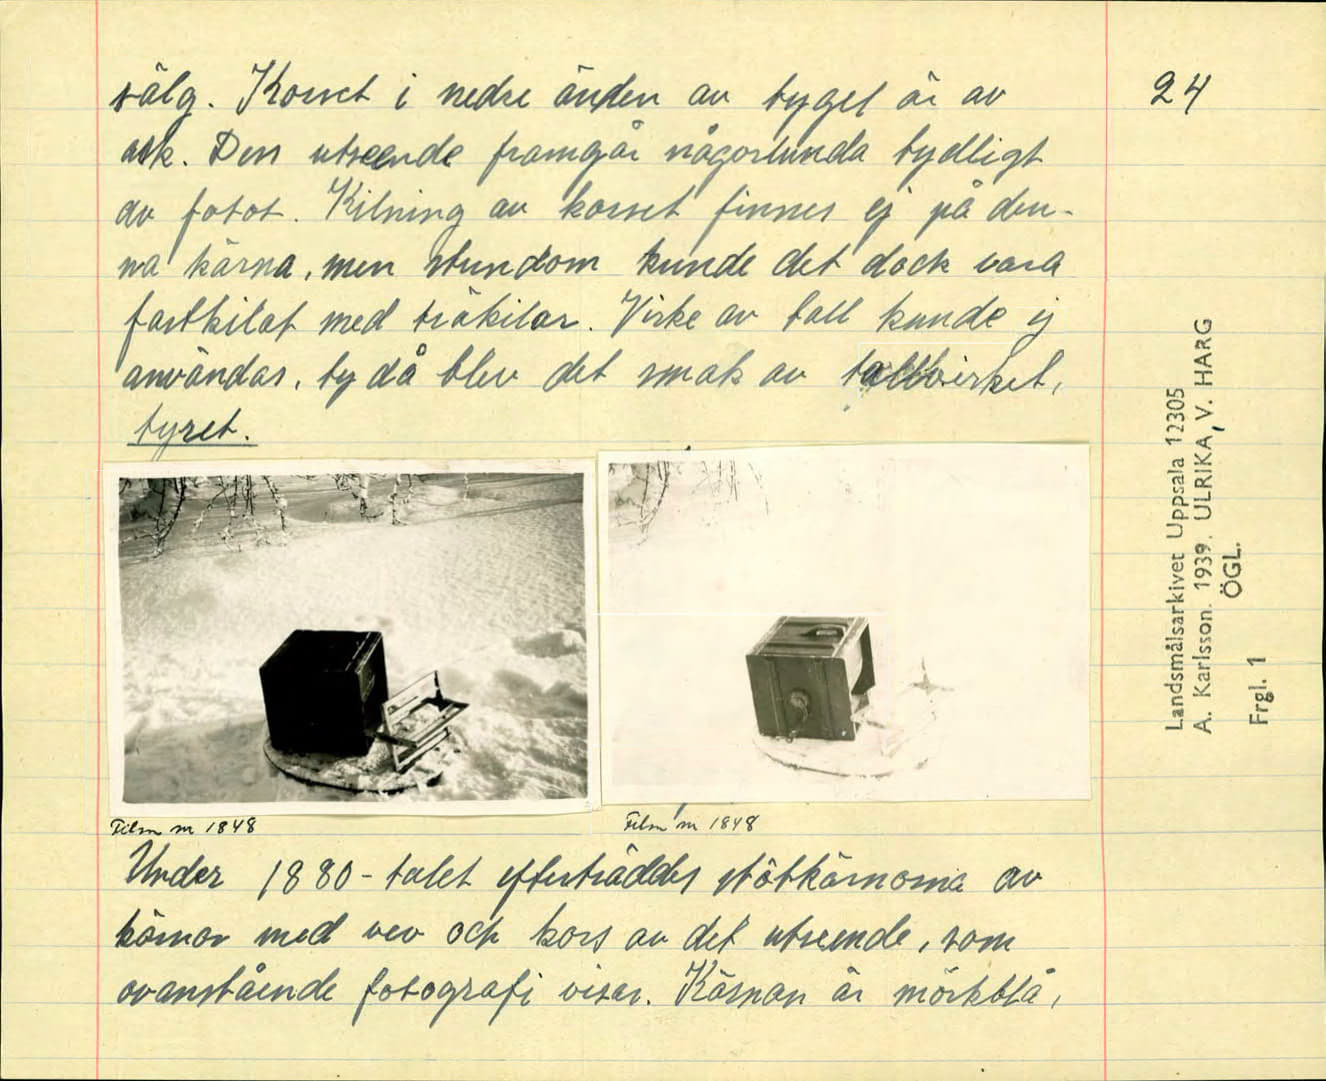 sälg. Korset i nedre änden av tyget är av
ask. Dess utseende framgår någorlunda tydligt
av fotot. Kilning av korset finnes ej på den-
na kärna, men stundom kunde det dock vara
fastkilat med träkilar. Virke av tall kunde ej
användas, ty då blev det smak av tallvirket,
tyret.
Film nr 1848
Film nr 1848
Under 1880-talet efterträddes stötkärnorna av
kärnor med vev och kors av det utseende, som
ovanstående fotografi visar. Kärnan är mörkblå,
24
Landsmålsarkivet Uppsala 12305
A. Karlsson. 1939. ULRIKA, V. HARG
ÖGL.
Frgl. 1